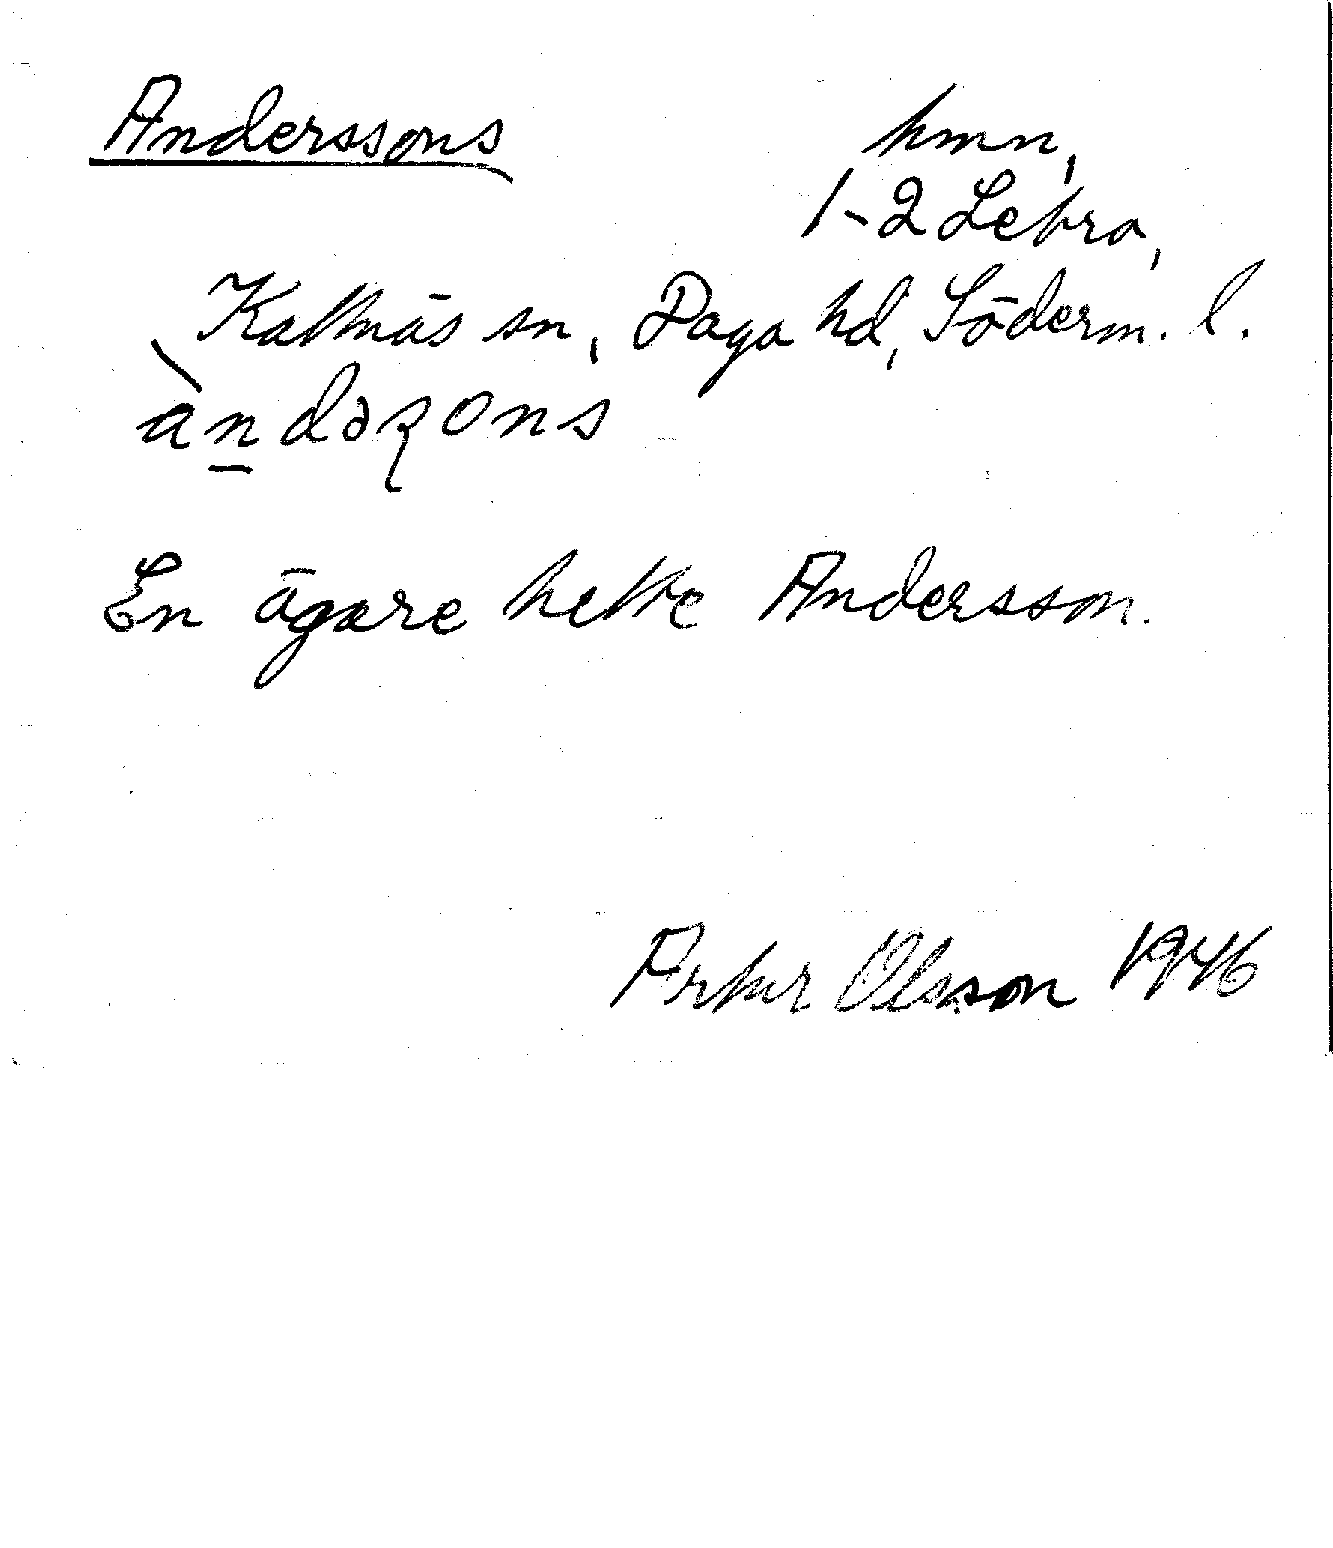 Anderssons hmn,
1-2 Lebro,
Kattnäs sn, Daga hd, Söderm. l.
àndəʂons
En ägare hette Andersson.
Artur Olsson 1946